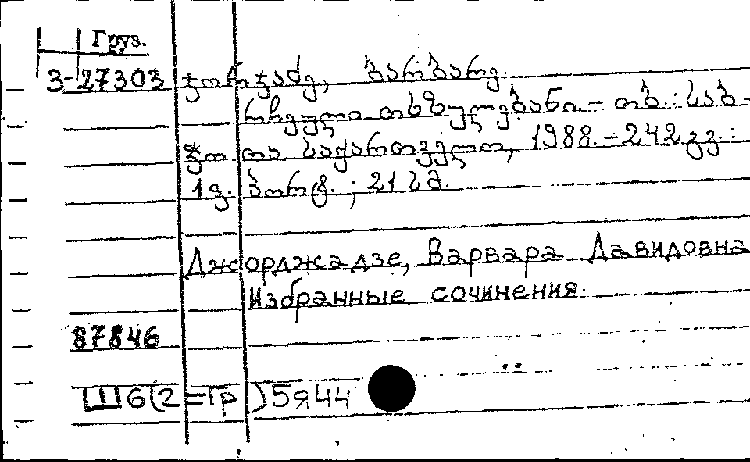 Груз.
3-27303 ჯორჯაძე, ბარბარე.
რჩეული თხზულებანი.- თბ.: საბ-
ჭოთა საქართველო, 1988.-242გვ.:
1ფ. პორტ.; 21სმ.
Джорджадзе, Варвара Давидовна
Избранные сочинения.
87846
Ш6(2=Гр)5я44